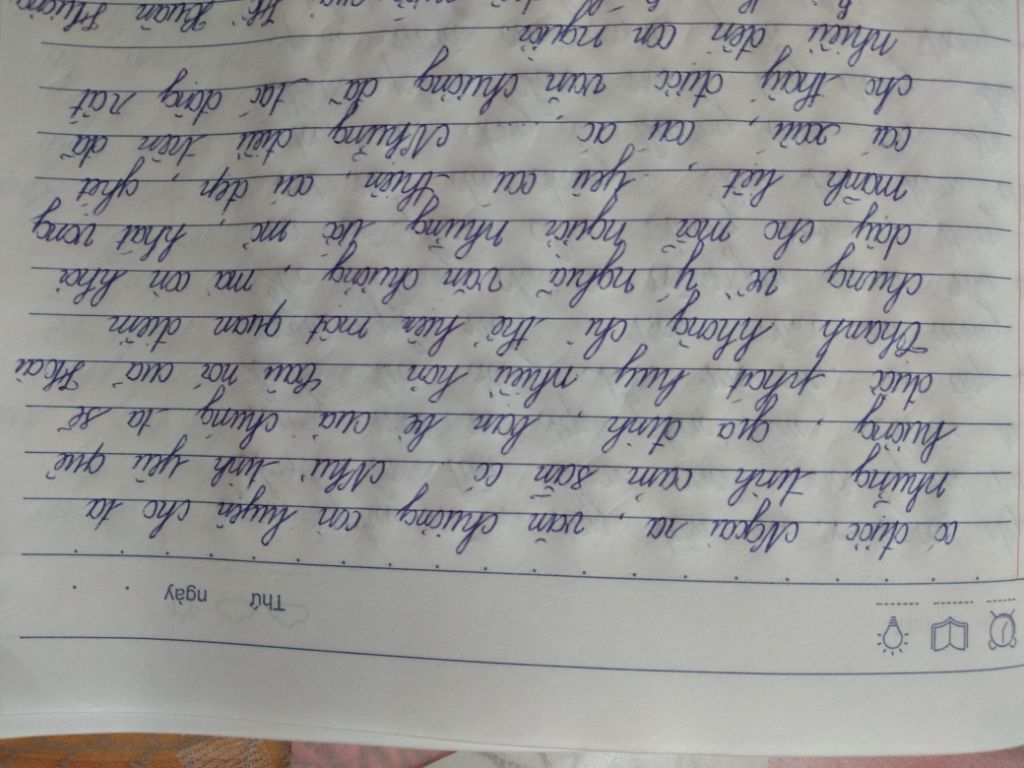 Thứ ngày
có được. Ngoài ra, văn chương còn luyện cho ta
những tình cảm sẵn có. Như tình yêu quê
hương, gia đình, bạn bè của chúng ta sẽ
được phát huy nhiều hơn. Câu nói của Hoài
Thanh không chỉ thể hiện một quan điểm
chung về ý nghĩa văn chương, mà còn khơi
dậy cho mỗi người những ước mơ, khát vọng
mãnh liệt, yêu cái thiện, cái đẹp, ghét
cái xấu, cái ác,... Những điều trên đã
cho thấy được văn chương đã tác động rất
nhiều đến con người.
Hồ Xuân Hương